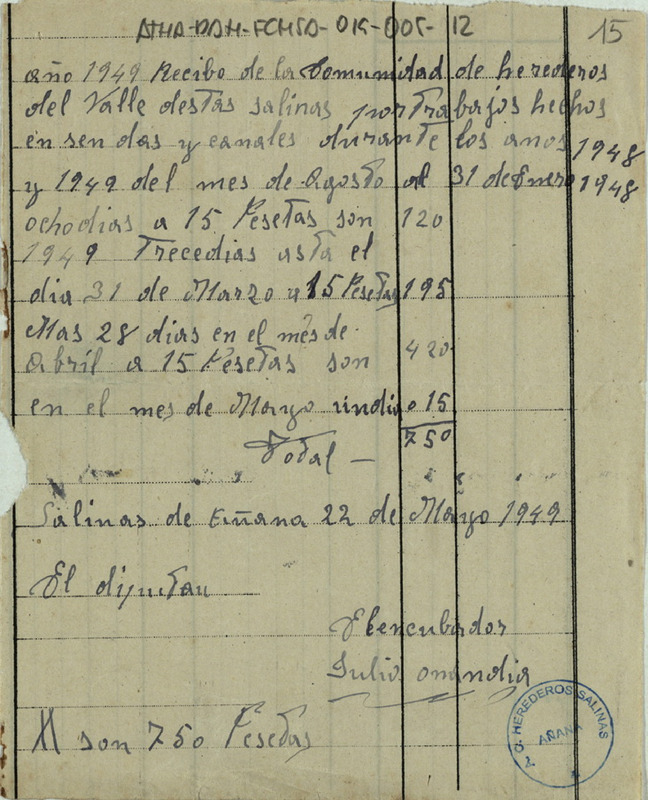 ATHA-DAH-FCHSA-015-005-12 15
año 1949 Recibo de la Comunidad de herederos
del Valle destas salinas por trabajos hechos
en sendas y canales durante los anos 1948
y 1949 del mes de Agosto al 31 de Enero 1948
ocho dias a 15 Pesetas son 120
1949 Trece dias asta el
dia 31 de Marzo a 15 Pesetas 195
Mas 28 dias en el mes de
abríl a 15 Pesetas son 420
en el mes de Mayo un dia 0 15
Total — 750
Salinas de Añana 22 de Mayo 1949
El diputau
El encubador
Julio
son 750 Pesetas
C. HEREDEROS SALINAS
AÑANA